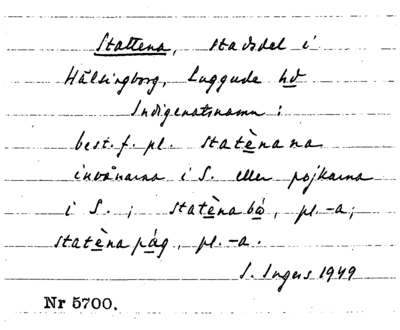 Stattena, stadsdel i
Hälsingborg, Luggude hd
Indigenatsnamn:
best. f. pl. statènana
invånarna i S. eller pojkarna
i S.; statènabo, pl. -a;
statènapåg, pl. -a.
S. Ingers 1949
Nr 5700.